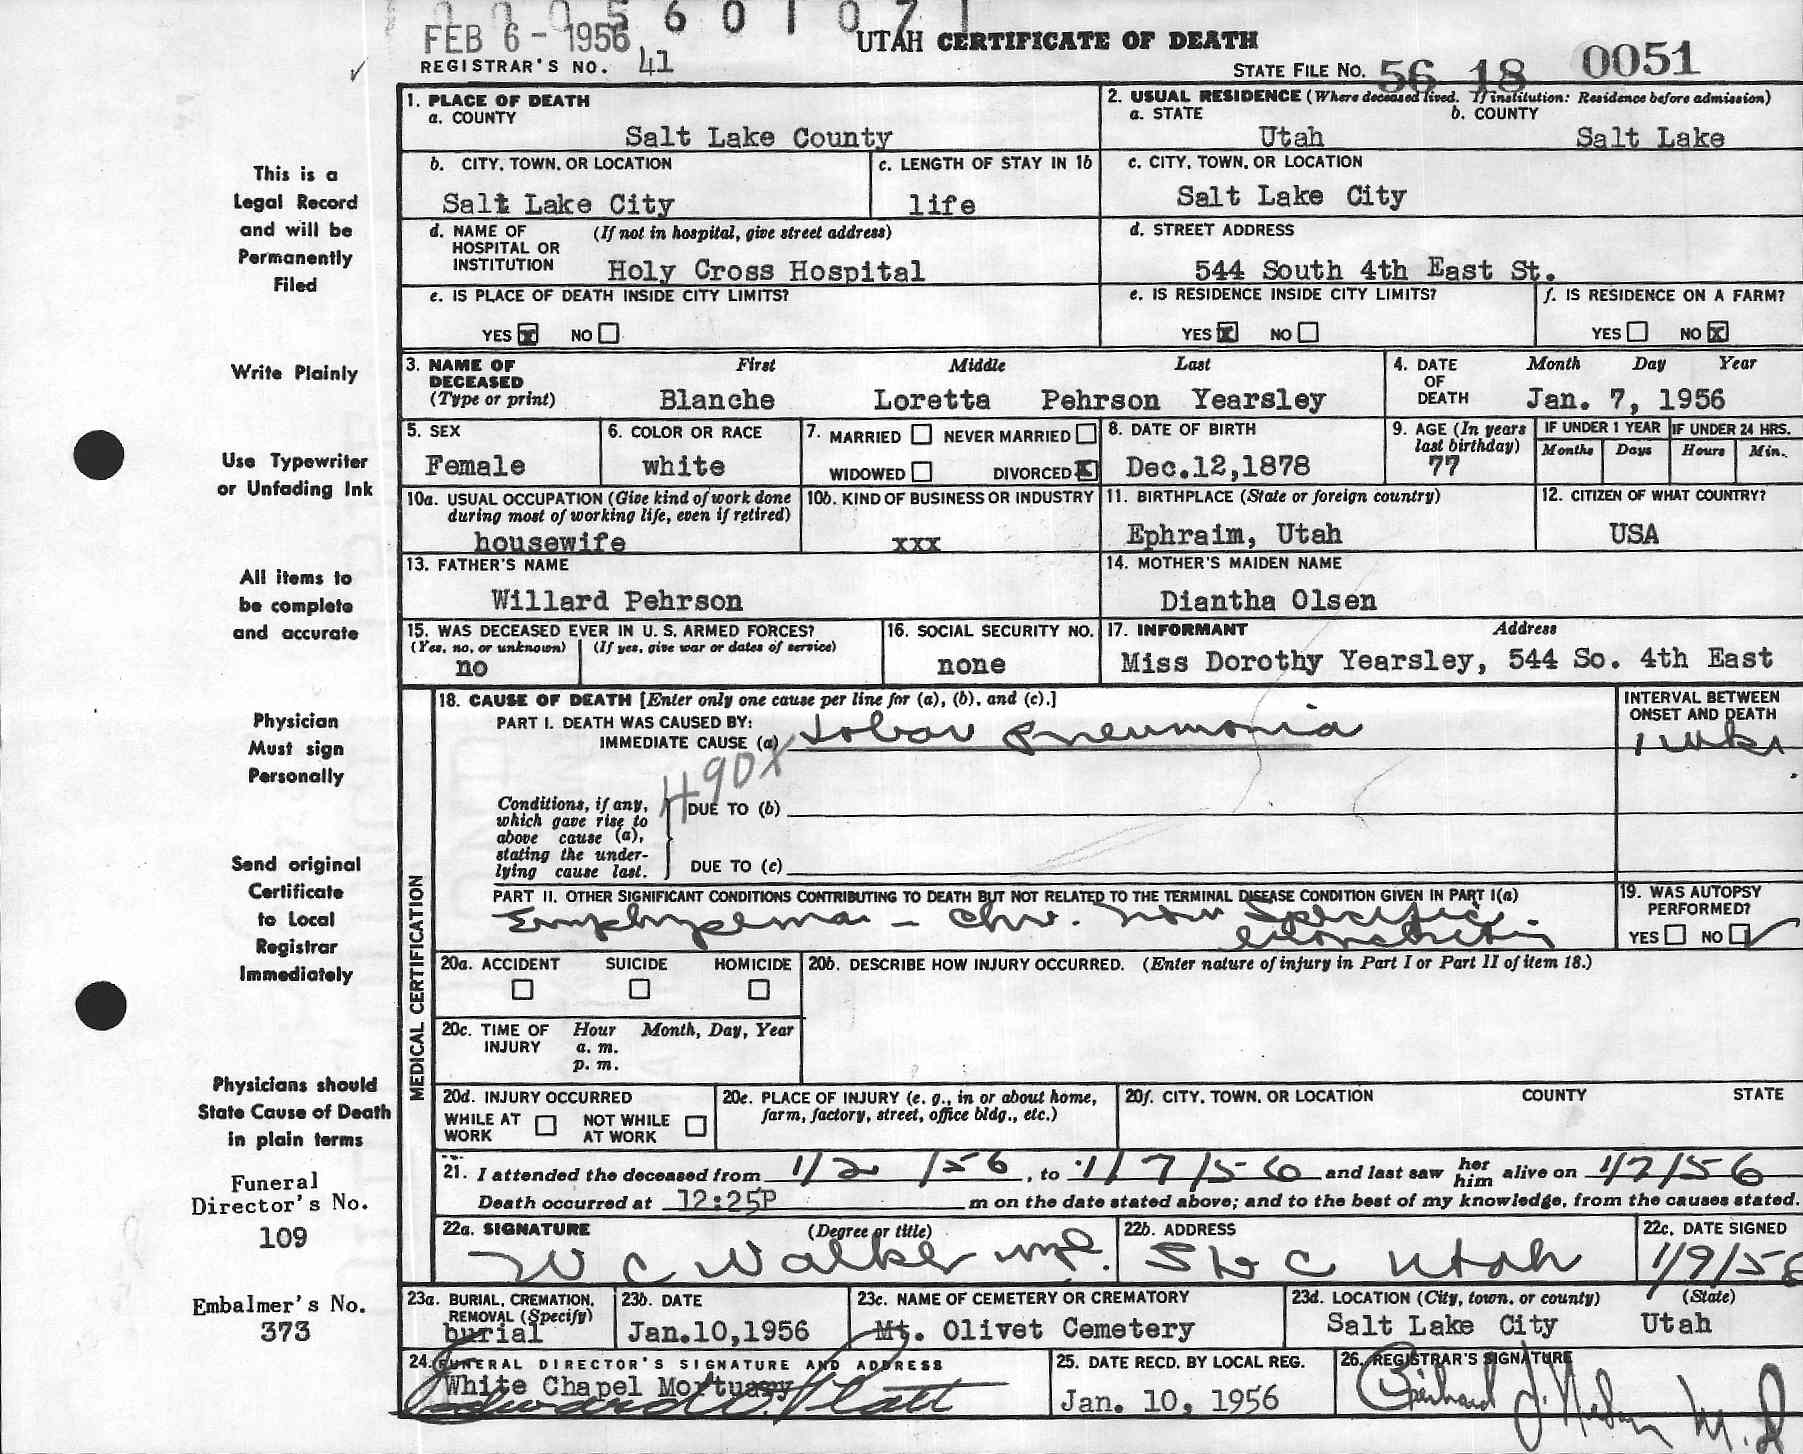 0 0 0 5 6 0 1 0 7 1
FEB 6 - 1956
UTAH CERTIFICATE OF DEATH
REGISTRAR'S NO. 41
STATE FILE NO. 56 18 0051
This is a
Legal Record
and will be
Permanently
Filed
Write Plainly
Use Typewriter
or Unfading Ink
All items to
be complete
and accurate
Physician
Must sign
Personally
Send original
Certificate
to Local
Registrar
Immediately
Physicians should
State Cause of Death
in plain terms
Funeral
Director's No.
109
Embalmer's No.
373
1. PLACE OF DEATH
a. COUNTY
Salt Lake County
2. USUAL RESIDENCE (Where deceased lived. If institution: Residence before admission)
a. STATE b. COUNTY
Utah Salt Lake
b. CITY, TOWN, OR LOCATION
Salt Lake City
c. LENGTH OF STAY IN 1b
life
c. CITY, TOWN, OR LOCATION
Salt Lake City
d. NAME OF (If not in hospital, give street address)
HOSPITAL OR
INSTITUTION Holy Cross Hospital
d. STREET ADDRESS
544 South 4th East St.
e. IS PLACE OF DEATH INSIDE CITY LIMITS?
YES x NO
e. IS RESIDENCE INSIDE CITY LIMITS?
YES x NO
f. IS RESIDENCE ON A FARM?
YES NO x
3. NAME OF First Middle Last
DECEASED
(Type or print) Blanche Loretta Pehrson Yearsley
4. DATE Month Day Year
OF
DEATH Jan. 7, 1956
5. SEX
Female
6. COLOR OR RACE
white
7. MARRIED NEVER MARRIED
WIDOWED DIVORCED x
8. DATE OF BIRTH
Dec.12,1878
9. AGE (In years
last birthday)
77
IF UNDER 1 YEAR IF UNDER 24 HRS.
Months Days Hours Min.
10a. USUAL OCCUPATION (Give kind of work done
during most of working life, even if retired)
housewife
10b. KIND OF BUSINESS OR INDUSTRY
xxx
11. BIRTHPLACE (State or foreign country)
Ephraim, Utah
12. CITIZEN OF WHAT COUNTRY?
USA
13. FATHER'S NAME
Willard Pehrson
14. MOTHER'S MAIDEN NAME
Diantha Olsen
15. WAS DECEASED EVER IN U. S. ARMED FORCES?
(Yes, no, or unknown) (If yes, give war or dates of service)
no
16. SOCIAL SECURITY NO.
none
17. INFORMANT Address
Miss Dorothy Yearsley, 544 So. 4th East
MEDICAL CERTIFICATION
18. CAUSE OF DEATH [Enter only one cause per line for (a), (b), and (c).]
PART I. DEATH WAS CAUSED BY:
IMMEDIATE CAUSE (a) Lobar Pneumonia
INTERVAL BETWEEN
ONSET AND DEATH
1 wk
490X
Conditions, if any,
which gave rise to
above cause (a),
stating the under-
lying cause last.
DUE TO (b)
DUE TO (c)
PART II. OTHER SIGNIFICANT CONDITIONS CONTRIBUTING TO DEATH BUT NOT RELATED TO THE TERMINAL DISEASE CONDITION GIVEN IN PART I(a)
Emphysema - chr. non specific
19. WAS AUTOPSY
PERFORMED?
YES NO ✓
20a. ACCIDENT SUICIDE HOMICIDE
20b. DESCRIBE HOW INJURY OCCURRED. (Enter nature of injury in Part I or Part II of item 18.)
20c. TIME OF Hour Month, Day, Year
INJURY a. m.
p. m.
20d. INJURY OCCURRED
WHILE AT NOT WHILE
WORK AT WORK
20e. PLACE OF INJURY (e. g., in or about home,
farm, factory, street, office bldg., etc.)
20f. CITY, TOWN, OR LOCATION COUNTY STATE
21. I attended the deceased from 1/2 /56, to 1/7/56 and last saw her him alive on 1/7/56
Death occurred at 12:25P m on the date stated above; and to the best of my knowledge, from the causes stated.
22a. SIGNATURE (Degree or title)
W C Walker MD.
22b. ADDRESS
SLC Utah
22c. DATE SIGNED
1/9/56
23a. BURIAL, CREMATION,
REMOVAL (Specify)
burial
23b. DATE
Jan.10,1956
23c. NAME OF CEMETERY OR CREMATORY
Mt. Olivet Cemetery
23d. LOCATION (City, town, or county) (State)
Salt Lake City Utah
24. FUNERAL DIRECTOR'S SIGNATURE AND ADDRESS
White Chapel Mortuary
25. DATE RECD. BY LOCAL REG.
Jan. 10, 1956
26. REGISTRAR'S SIGNATURE